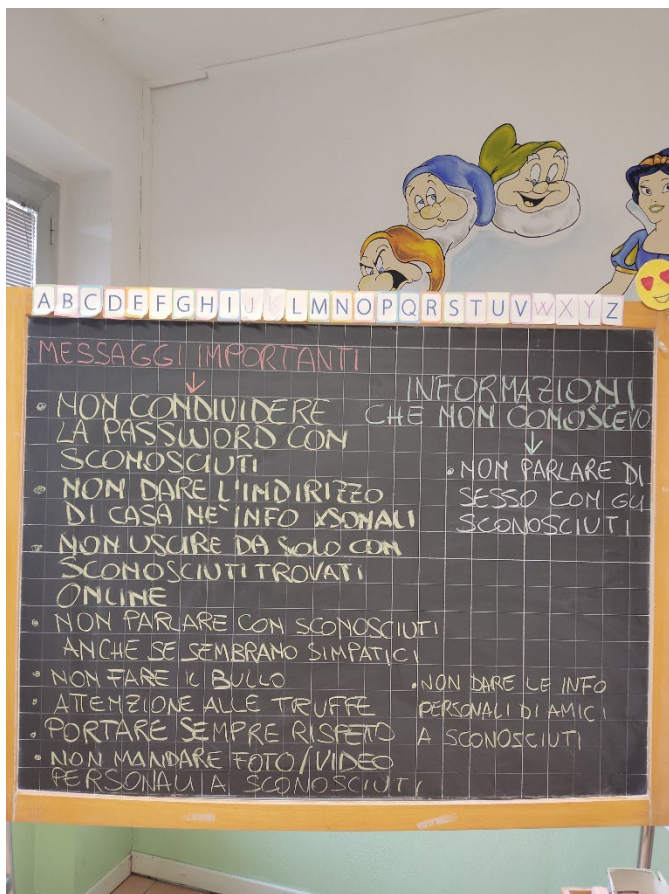 A B C D E F G H I J K L M N O P Q R S T U V W X Y Z
MESSAGGI IMPORTANTI
↓
• NON CONDIVIDERE
LA PASSWORD CON
SCONOSCIUTI
• NON DARE L'INDIRIZZO
DI CASA NE' INFO XSONALI
- NON USCIRE DA SOLO CON
SCONOSCIUTI TROVATI
ONLINE
• NON PARLARE CON SCONOSCIUTI
ANCHE SE SEMBRANO SIMPATICI
• NON FARE IL BULLO
• ATTENZIONE ALLE TRUFFE
• PORTARE SEMPRE RISPETO
• NON MANDARE FOTO/VIDEO
PERSONALI A SCONOSCIUTI
INFORMAZIONI
CHE NON CONOSCEVO
↓
• NON PARLARE DI
SESSO CON GLI
SCONOSCIUTI
• NON DARE LE INFO
PERSONALI DI AMICI
A SCONOSCIUTI